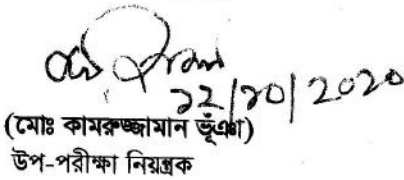 ২২/১০/২০২০
(মোঃ কামরুজ্জামান ভূঁঞা)
উপ-পরীক্ষা নিয়ন্ত্রক